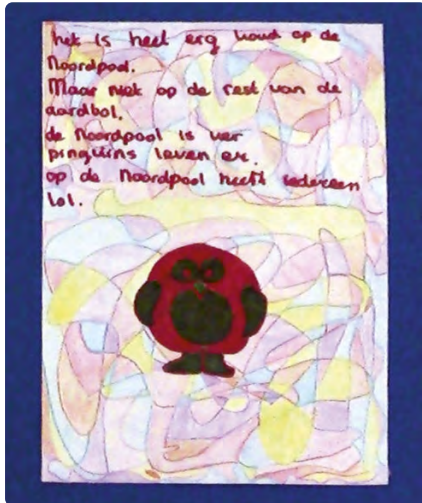 het is heel erg koud op de
Noordpool.
Maar niet op de rest van de
aardbol.
de Noordpool is ver
pinguins leven er.
op de Noordpool heeft iedereen
lol.